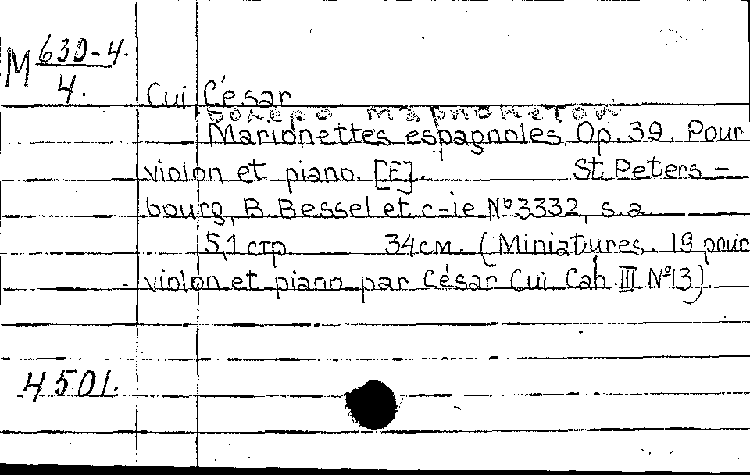 M 630-4.
4.
Cui César
Болеро марионеток
Marionettes espagnoles, Op. 39. Pour
violon et piano. [E]. St. Peters-
bourg, B. Bessel et c-ie №3332, s.a.
5,1 стр. 34см. (Miniatures. 19 pour
violon et piano par César Cui Cah. III №13)
4501.